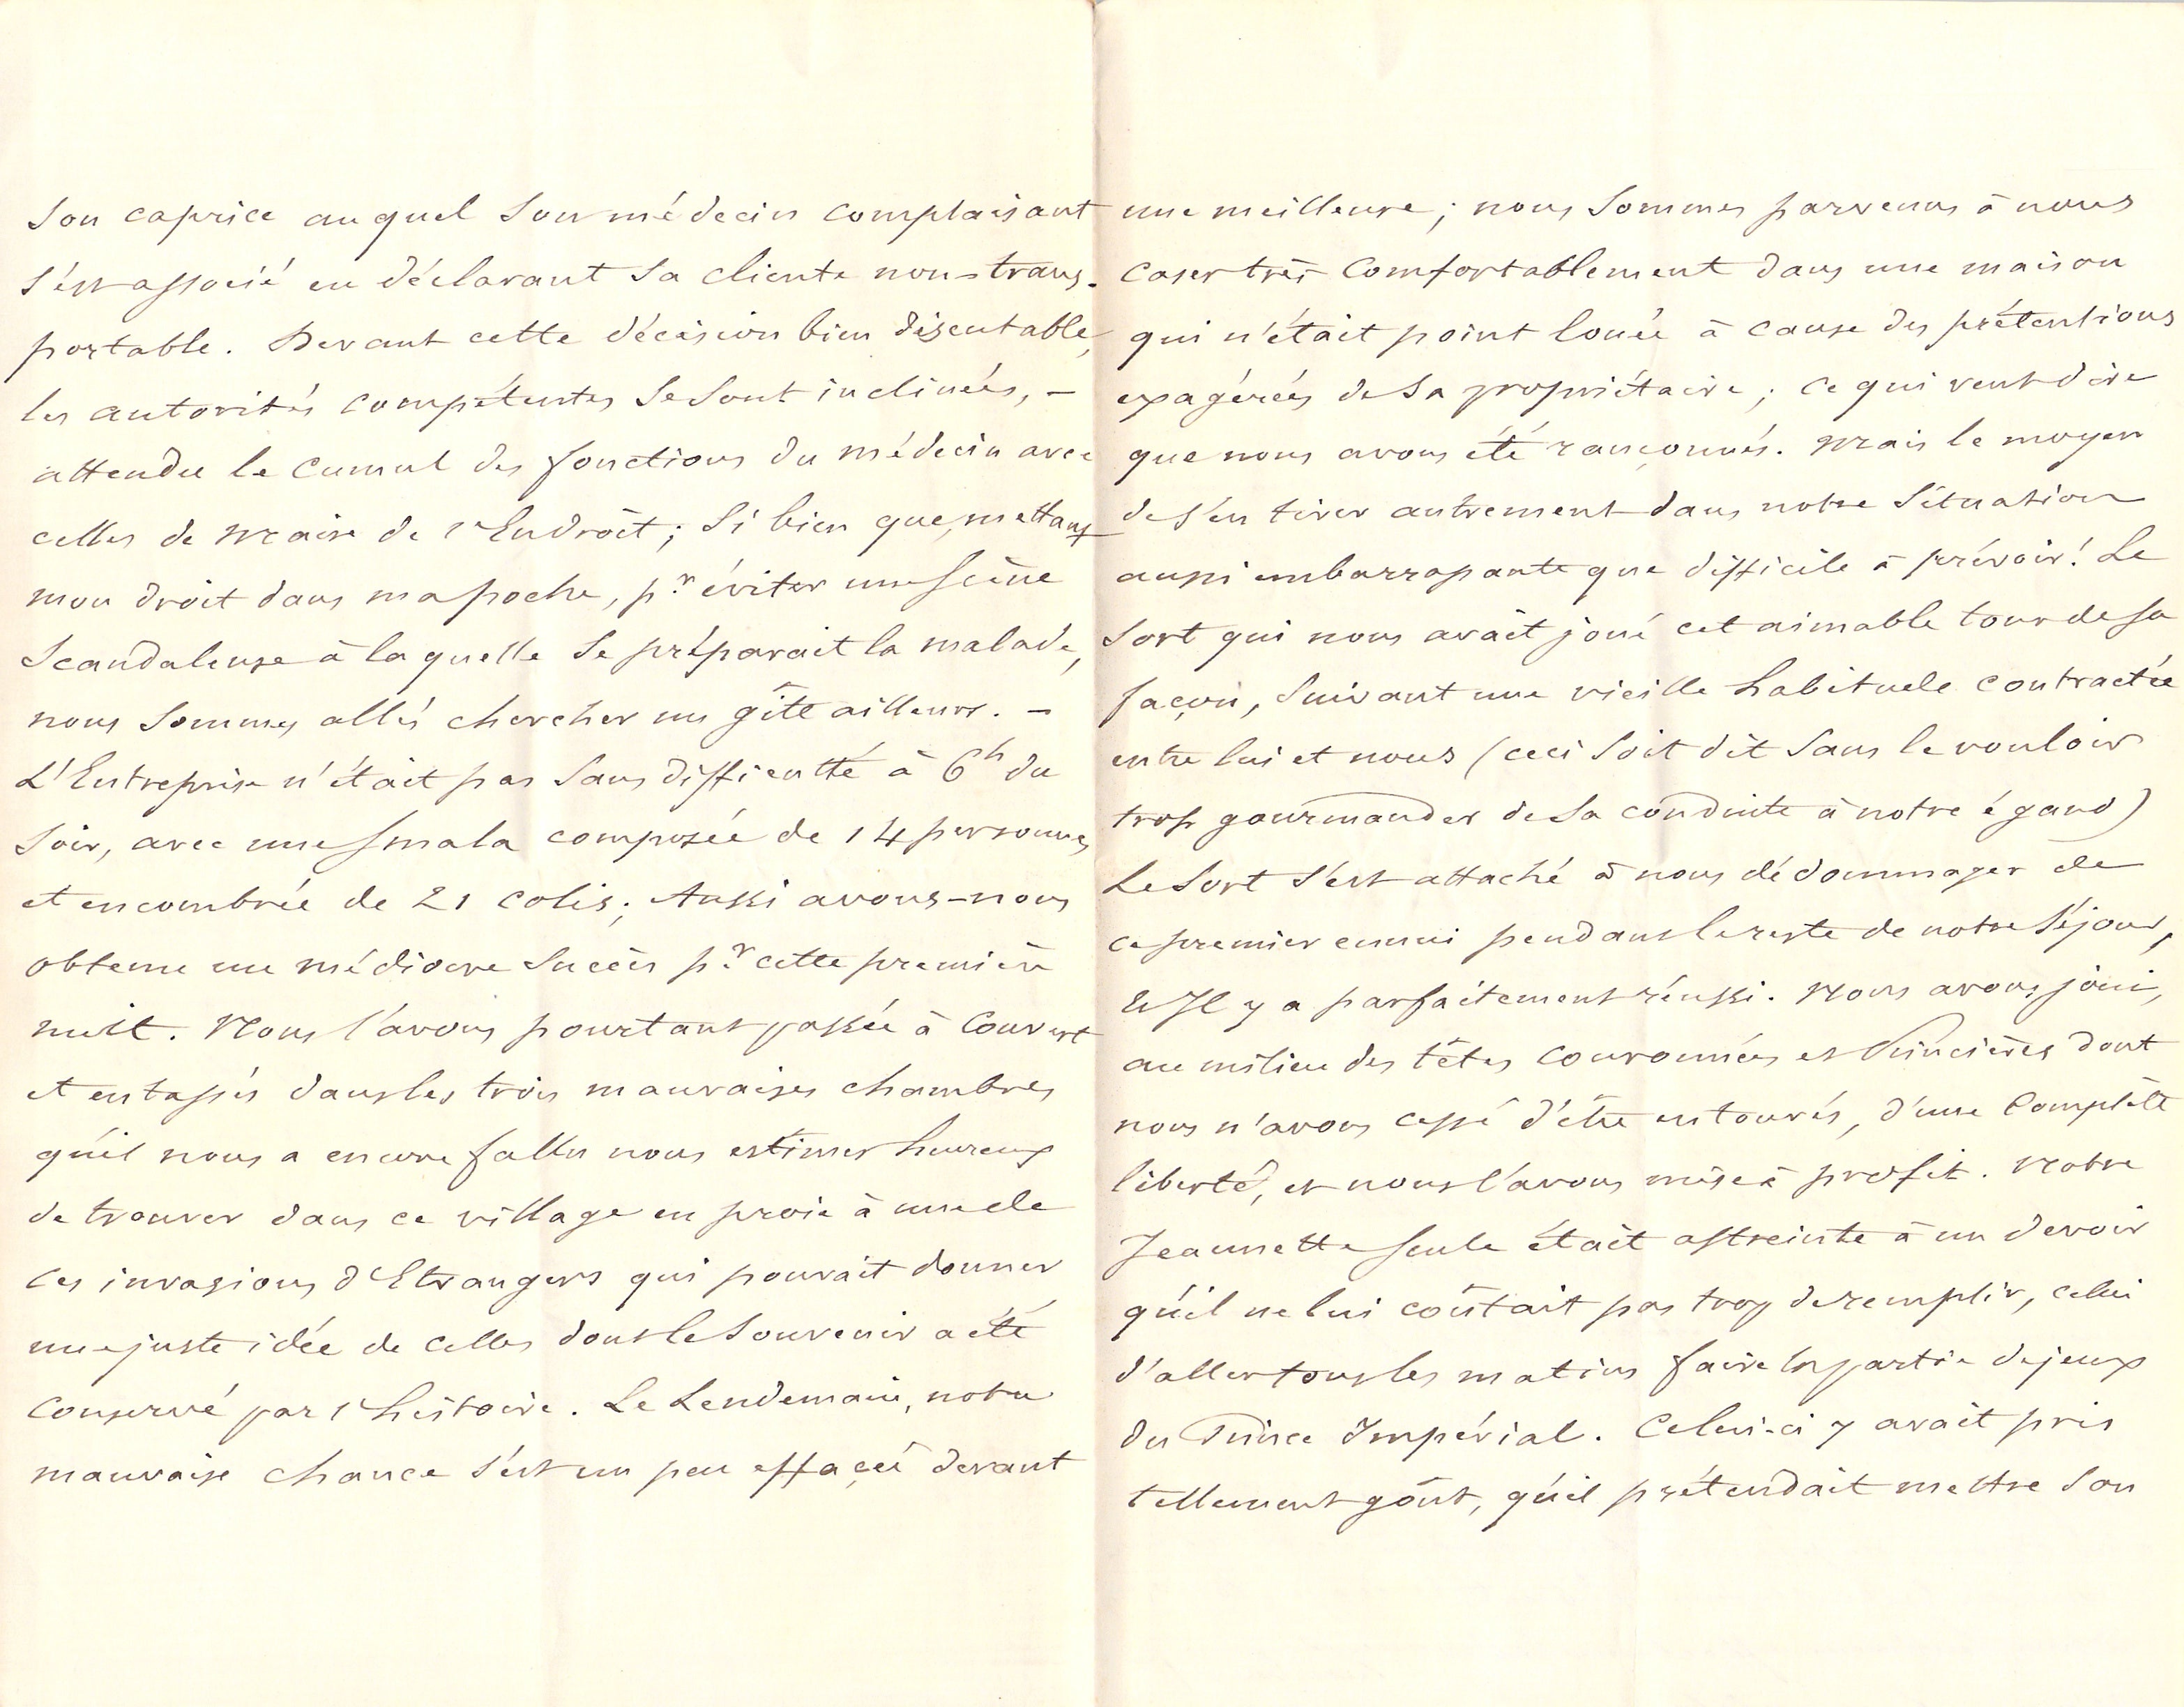 son caprice auquel son médecin complaisant
s'est associé en déclarant sa cliente non-trans-
portable. Devant cette décision bien discutable,
les autorités compétentes se sont inclinées, –
attendu le cumul des fonctions du médecin avec
celles de Maire de l'Endroit; si bien que, mettant
mon droit dans ma poche, pr éviter une scène
scandaleuse à laquelle se préparait la malade,
nous sommes allés chercher un gîte ailleurs. –
L'Entreprise n'était pas sans difficulté à 6h du
soir, avec une smala composée de 14 personnes
et encombrée de 21 colis; Aussi avons-nous
obtenu un médiocre succès pr cette première
nuit. Nous l'avons pourtant passée à couvert
et entassés dans les trois mauvaises chambres
qu'il nous a encore fallu nous estimer heureux
de trouver dans ce village en proie à une de
ces invasions d'Etrangers qui pouvait donner
une juste idée de celles dont le souvenir a été
conservé par l'histoire. Le Lendemain, notre
mauvaise chance s'est un peu effacée devant
une meilleure; nous sommes parvenus à nous
caser très comfortablement dans une maison
qui n'était point louée à cause des prétentions
exagérées de sa propriétaire; ce qui veut dire
que nous avons été rançonnés. Mais le moyen
de s'en tirer autrement dans notre situation
aussi embarrassante que difficile à prévoir! Le
sort qui nous avait joué cet aimable tour de sa
façon, suivant une vieille habitude contractée
entre lui et nous (ceci soit dit sans le vouloir
trop gourmander de sa conduite à notre égard)
Le sort s'est attaché à nous dédommager de
ce premier ennui pendant le reste de notre séjour,
et Il y a parfaitement réussi. Nous avons joui,
au milieu des têtes couronnées et Princières dont
nous n'avons cessé d'être entourés, d'une complète
liberté, et nous l'avons mise à profit. Notre
Jeannette seule était astreinte à un devoir
qu'il ne lui coûtait pas trop de remplir, celui
d'aller tous les matins faire la partie de jeux
du Prince Impérial. Celui-ci y avait pris
tellement goût, qu'il prétendait mettre son